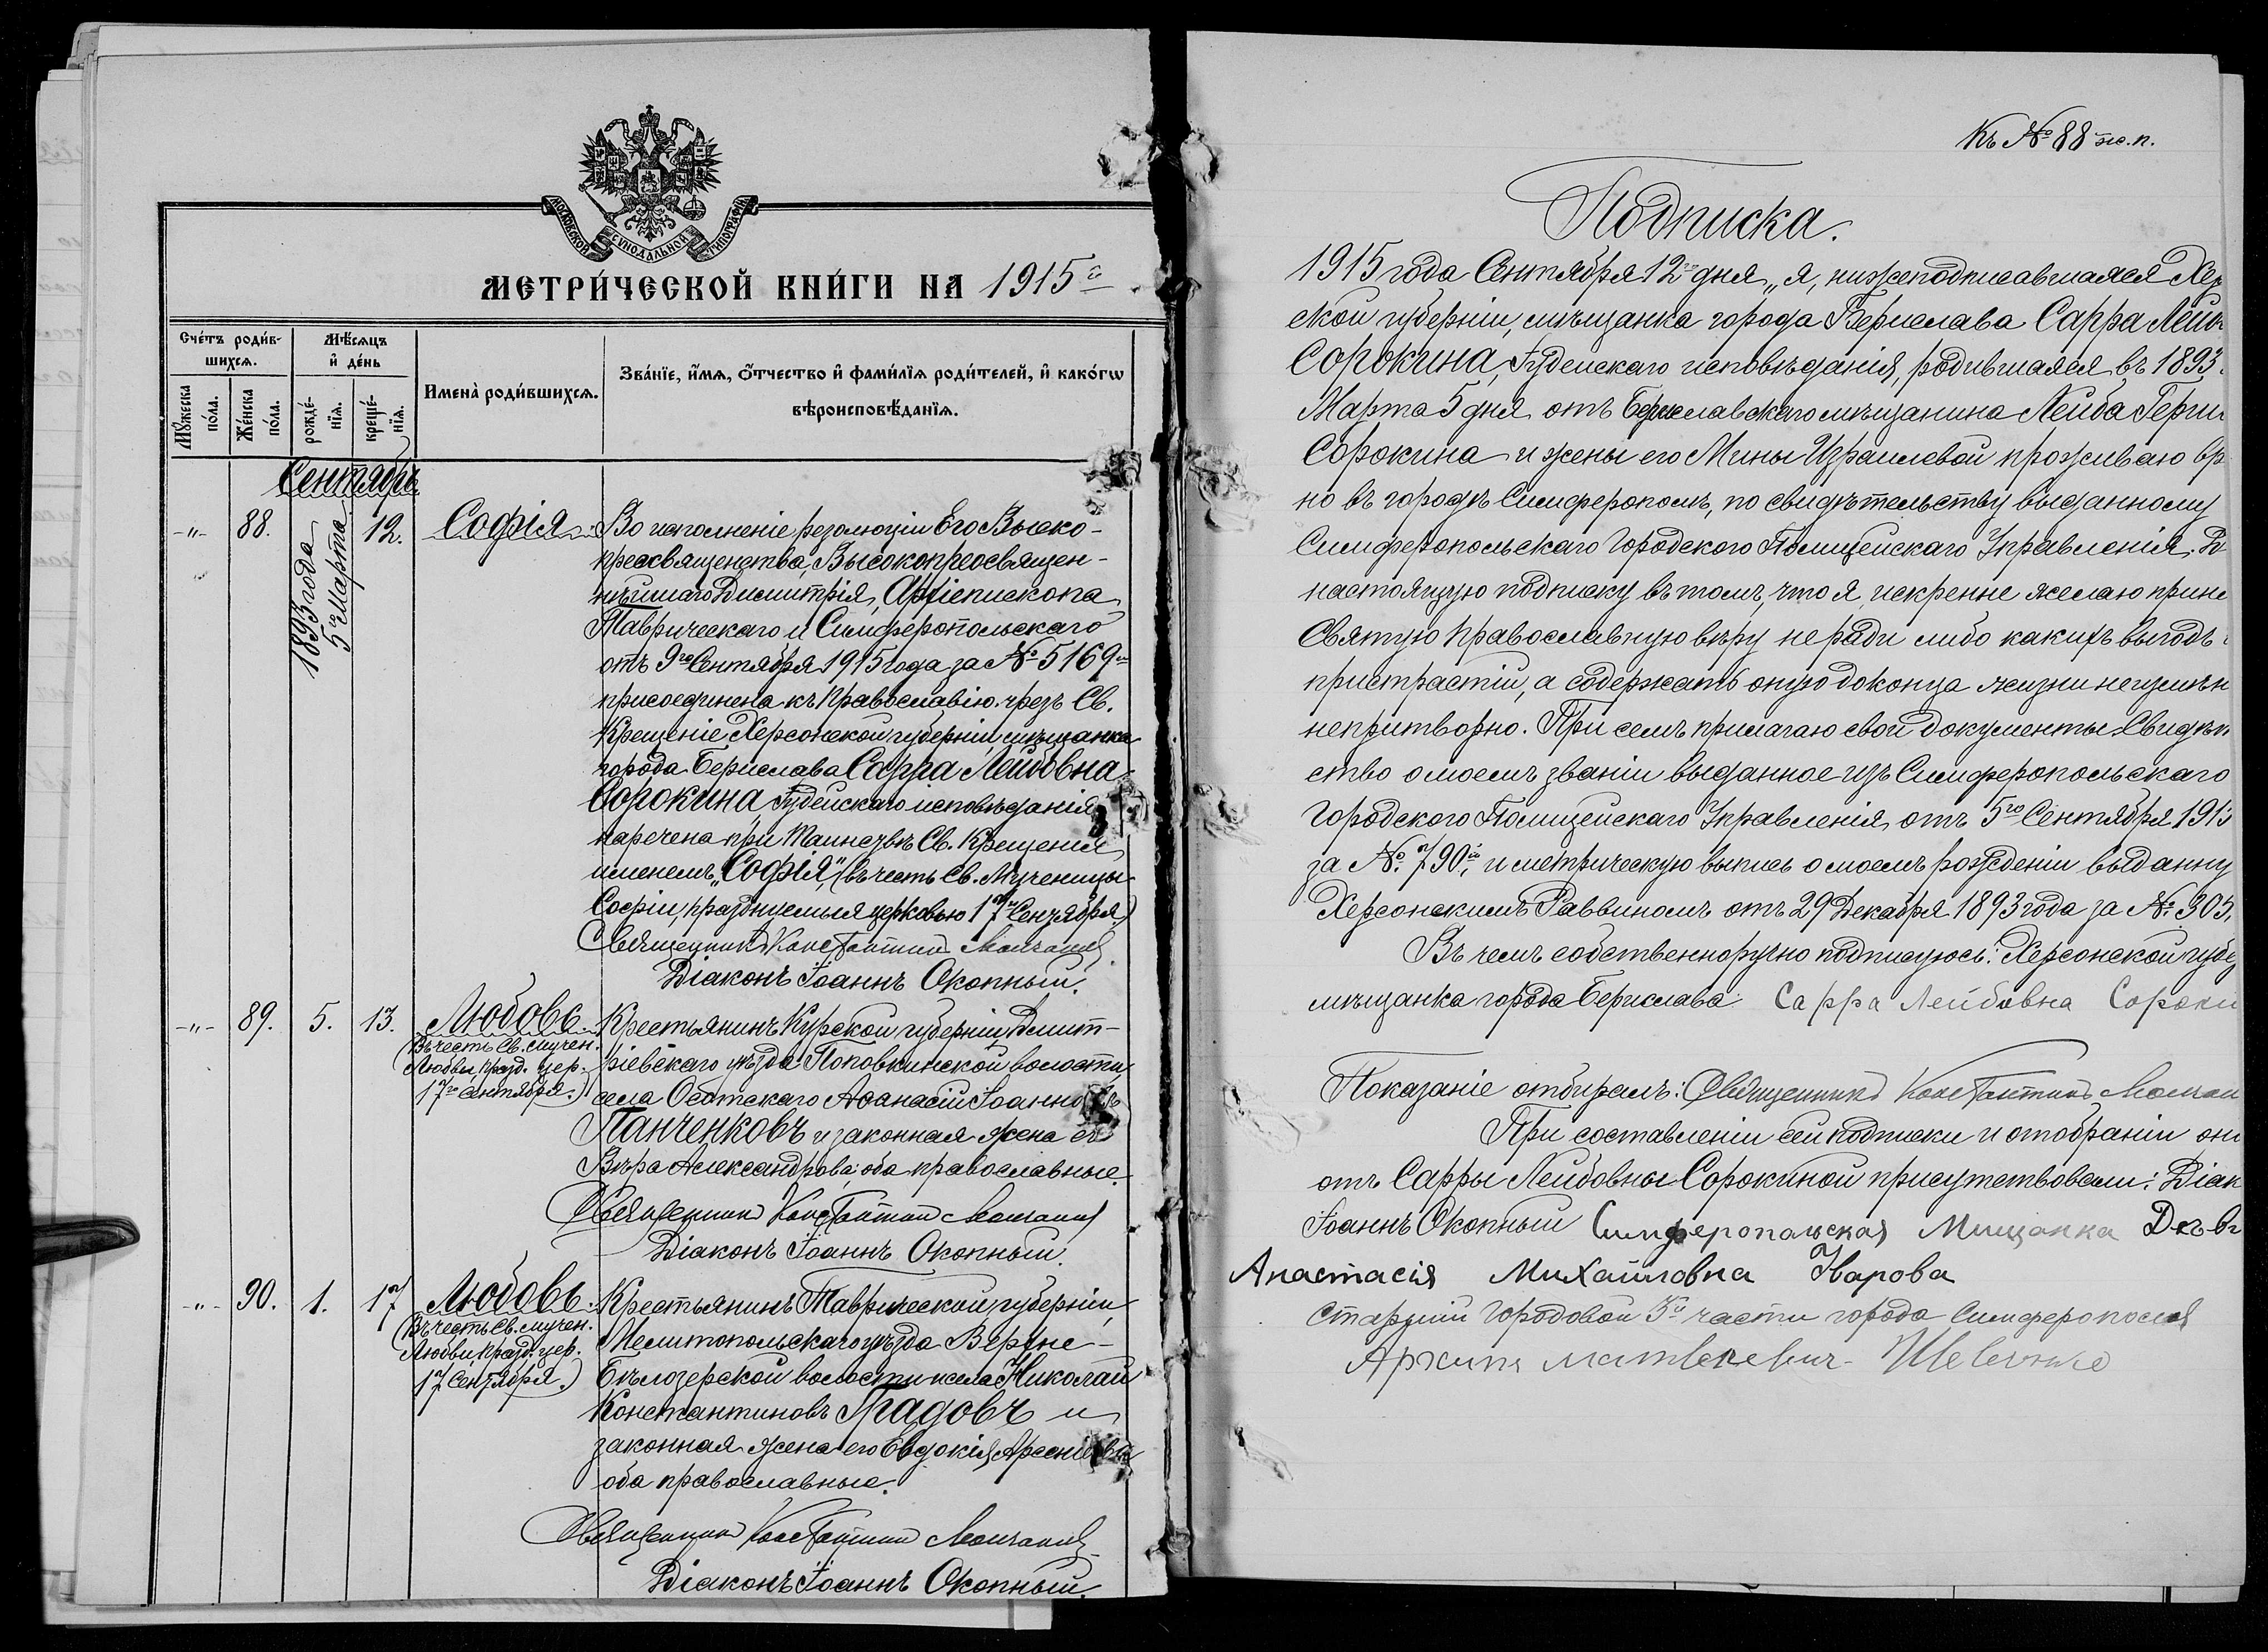 МОСКОВСКОЙ СѴНОДАЛЬНОЙ ТИПОГРАФІИ
МЕТРИ́ЧЕСКОЙ КНИ́ГИ НА 1915й
Сче́тъ роди́в-
шихсѧ.
Мѣ́сѧцъ
и҆ де́нь
Мꙋ́жеска
по́ла.
Же́нска
по́ла.
рожде́-
нїѧ.
креще́-
нїѧ.
Имена̀ роди́вшихсѧ.
Зва́нїе, и҆́мѧ, ѻ҆́тчество и҆ фами́лїѧ роди́телей, и҆ како́гѡ
вѣроисповѣ́данїѧ.
Сентябрь
-"- 88. 1893 года 5го Марта 12. Софія.
Во исполненіе резолюціи Его Высоко-
преосвященства, Высокопреосвящен-
нѣйшаго Димитрія, Архіепископа
Таврическаго и Симферопольскаго
отъ 9го Сентября 1915 года за № 5169м
присоединена къ Православію чрезъ Св.
Крещеніе Херсонской губерніи, мѣщанка
города Берислава Сарра Лейбовна
Сорокина, Іудейскаго исповѣданія
наречена при Таинствѣ Св. Крещенія
именемъ "Софія," (въ честь Св. Мученицы
Софіи, празднуемыя церковью 17го Сентября)
Священникъ Константинъ
Діаконъ Іоаннъ Окопный.
-"- 89. 5. 13. Любовь.
(Въ честь Св. мучен.
Любви, празд. цер.
17го Сентября.)
Крестьянинъ Курской губерніи, Дмит-
ріевскаго уѣзда Поповкинской волости,
села Аѳанасій Іоанновъ
Панченковъ и законная жена его
Вѣра Александрова; оба православные.
Священникъ Константинъ
Діаконъ Іоаннъ Окопный.
-"- 90. 1. 17 Любовь.
(Въ честь Св. мучен.
Любви, празд. цер.
17 Сентября.)
Крестьянинъ Таврической губерніи,
Мелитопольскаго уѣзда Верхне-
Бѣлозерской волости и села Николай
Константиновъ Градовъ и
законная жена его Евдокія Арсеніева
оба православные.
Священникъ Константинъ
Діаконъ Іоаннъ Окопный.
Къ № 88 ж.п.
Подписка.
1915 года Сентября 12го дня, я, нижеподписавшаяся Хер
ской губерніи, мѣщанка города Берислава Сарра Лейб
Сорокина, Іудейскаго исповѣданія, родившаяся въ 1893
Марта 5 дня отъ Бериславскаго мѣщанина Лейба Герш
Сорокина и жены его Мины Израилевой проживаю вр
но въ городѣ Симферополѣ, по свидѣтельству выданному
Симферопольскаго Городского Полицейскаго Управленія, Д
настоящую подписку въ томъ, что я, искренне желаю прин
Святую Православную вѣру не ради либо какихъ выгодъ
пристрастій, а содержать оную до конца жизни неизмѣн
непритворно. При семъ прилагаю свои документы: Свидѣт
ство о моемъ званіи выданное изъ Симферопольскаго
Городского Полицейскаго Управленія, отъ 5го Сентября 191
за № 790м, и метрическую выпись о моемъ рожденіи выданну
Херсонскимъ Раввиномъ отъ 29 Декабря 1893 года за № 305,
Въ чемъ собственноручно подписуюсь: Херсонской губе
мѣщанка города Берислава: Сарра Лейбовна Сороки
Показаніе отбиралъ: Священникъ Константинъ
При составленіи сей подписки и отобраніи он
отъ Сарры Лейбовны Сорокиной присутствовали: Діак
Іоаннъ Окопный Симферопольская Мищанка Дѣв
Анастасія Михайловна Нарова
Старшій Городовой 3й части города Симферополя
Архипъ Матвеевич Шевченко